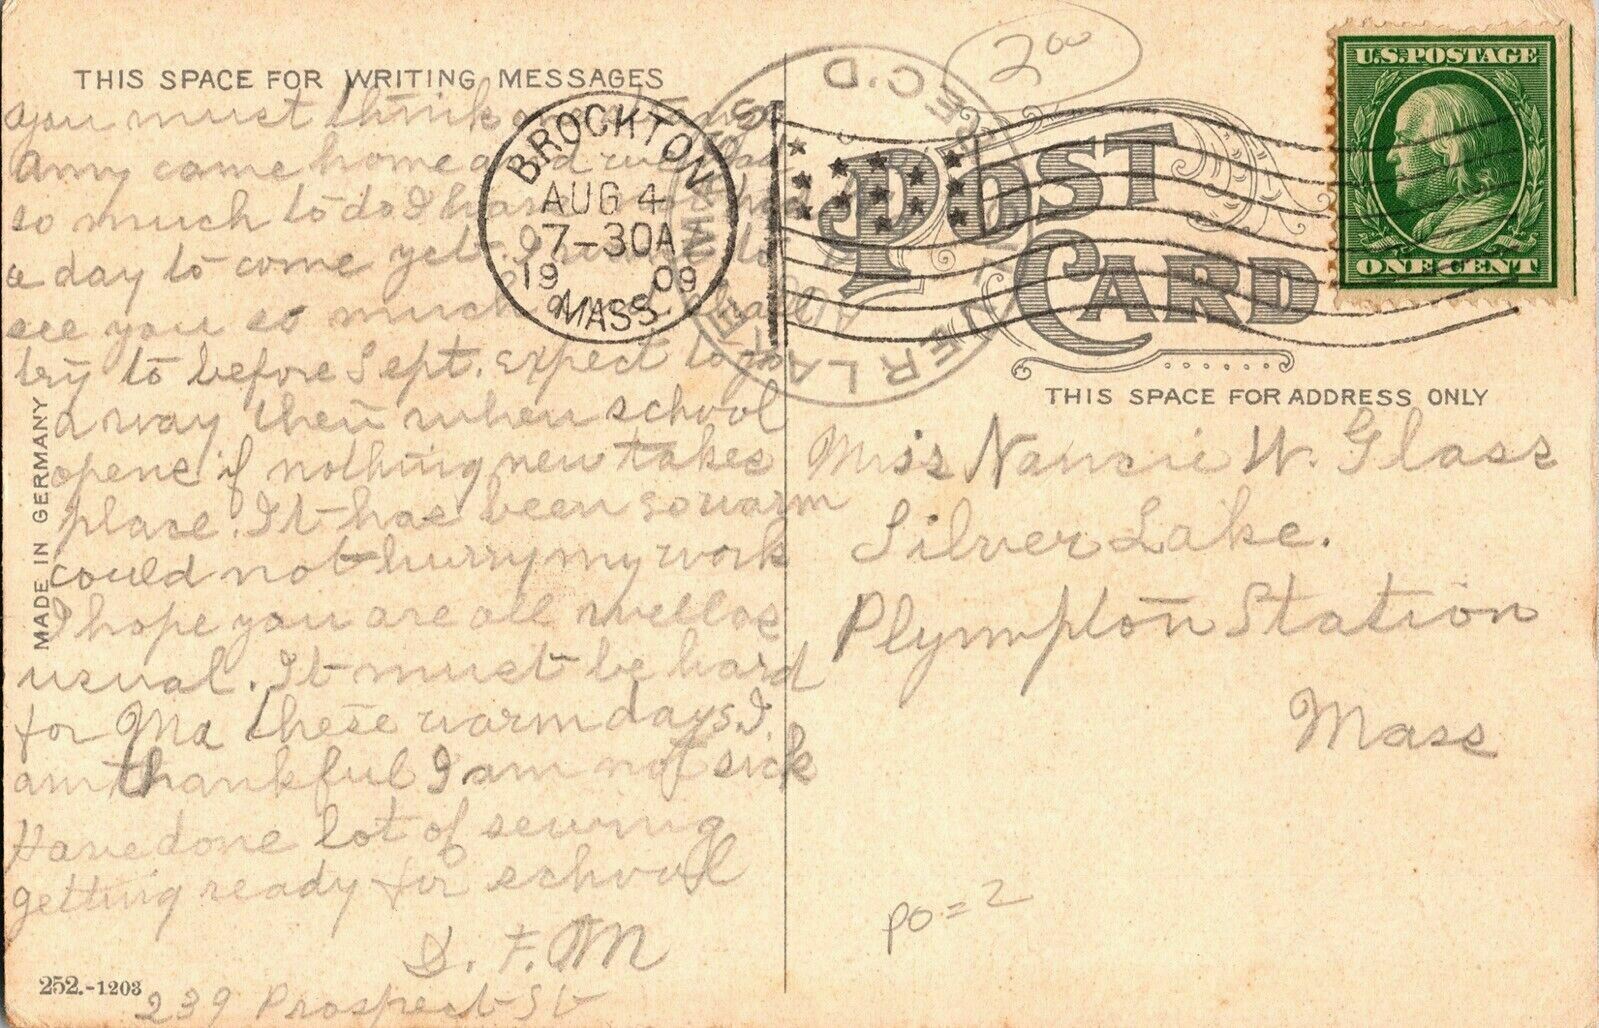 THIS SPACE FOR WRITING MESSAGES
you must think
Amy came home and
so much to do I have
a day to come yet. I
see you so much shall
try to before Sept. expect to go
away then when school
opens if nothing new takes
place. It has been so warm
could not hurry my work
I hope you are all well as
usual. It must be hard
for Ma these warm days. I
am thankful I am not sick
Have done lot of sewing
getting ready for school
S. F. M
239 Prospect St
252.-1203
MADE IN GERMANY
BROCKTON
AUG 4
7-30A
19 09
MASS.
SILVER LAKE
MASS
REC'D
200
POST CARD
U.S. POSTAGE
ONE CENT
THIS SPACE FOR ADDRESS ONLY
Miss Nannie W. Glass
Silver Lake.
Plympton Station
Mass
PO = 2